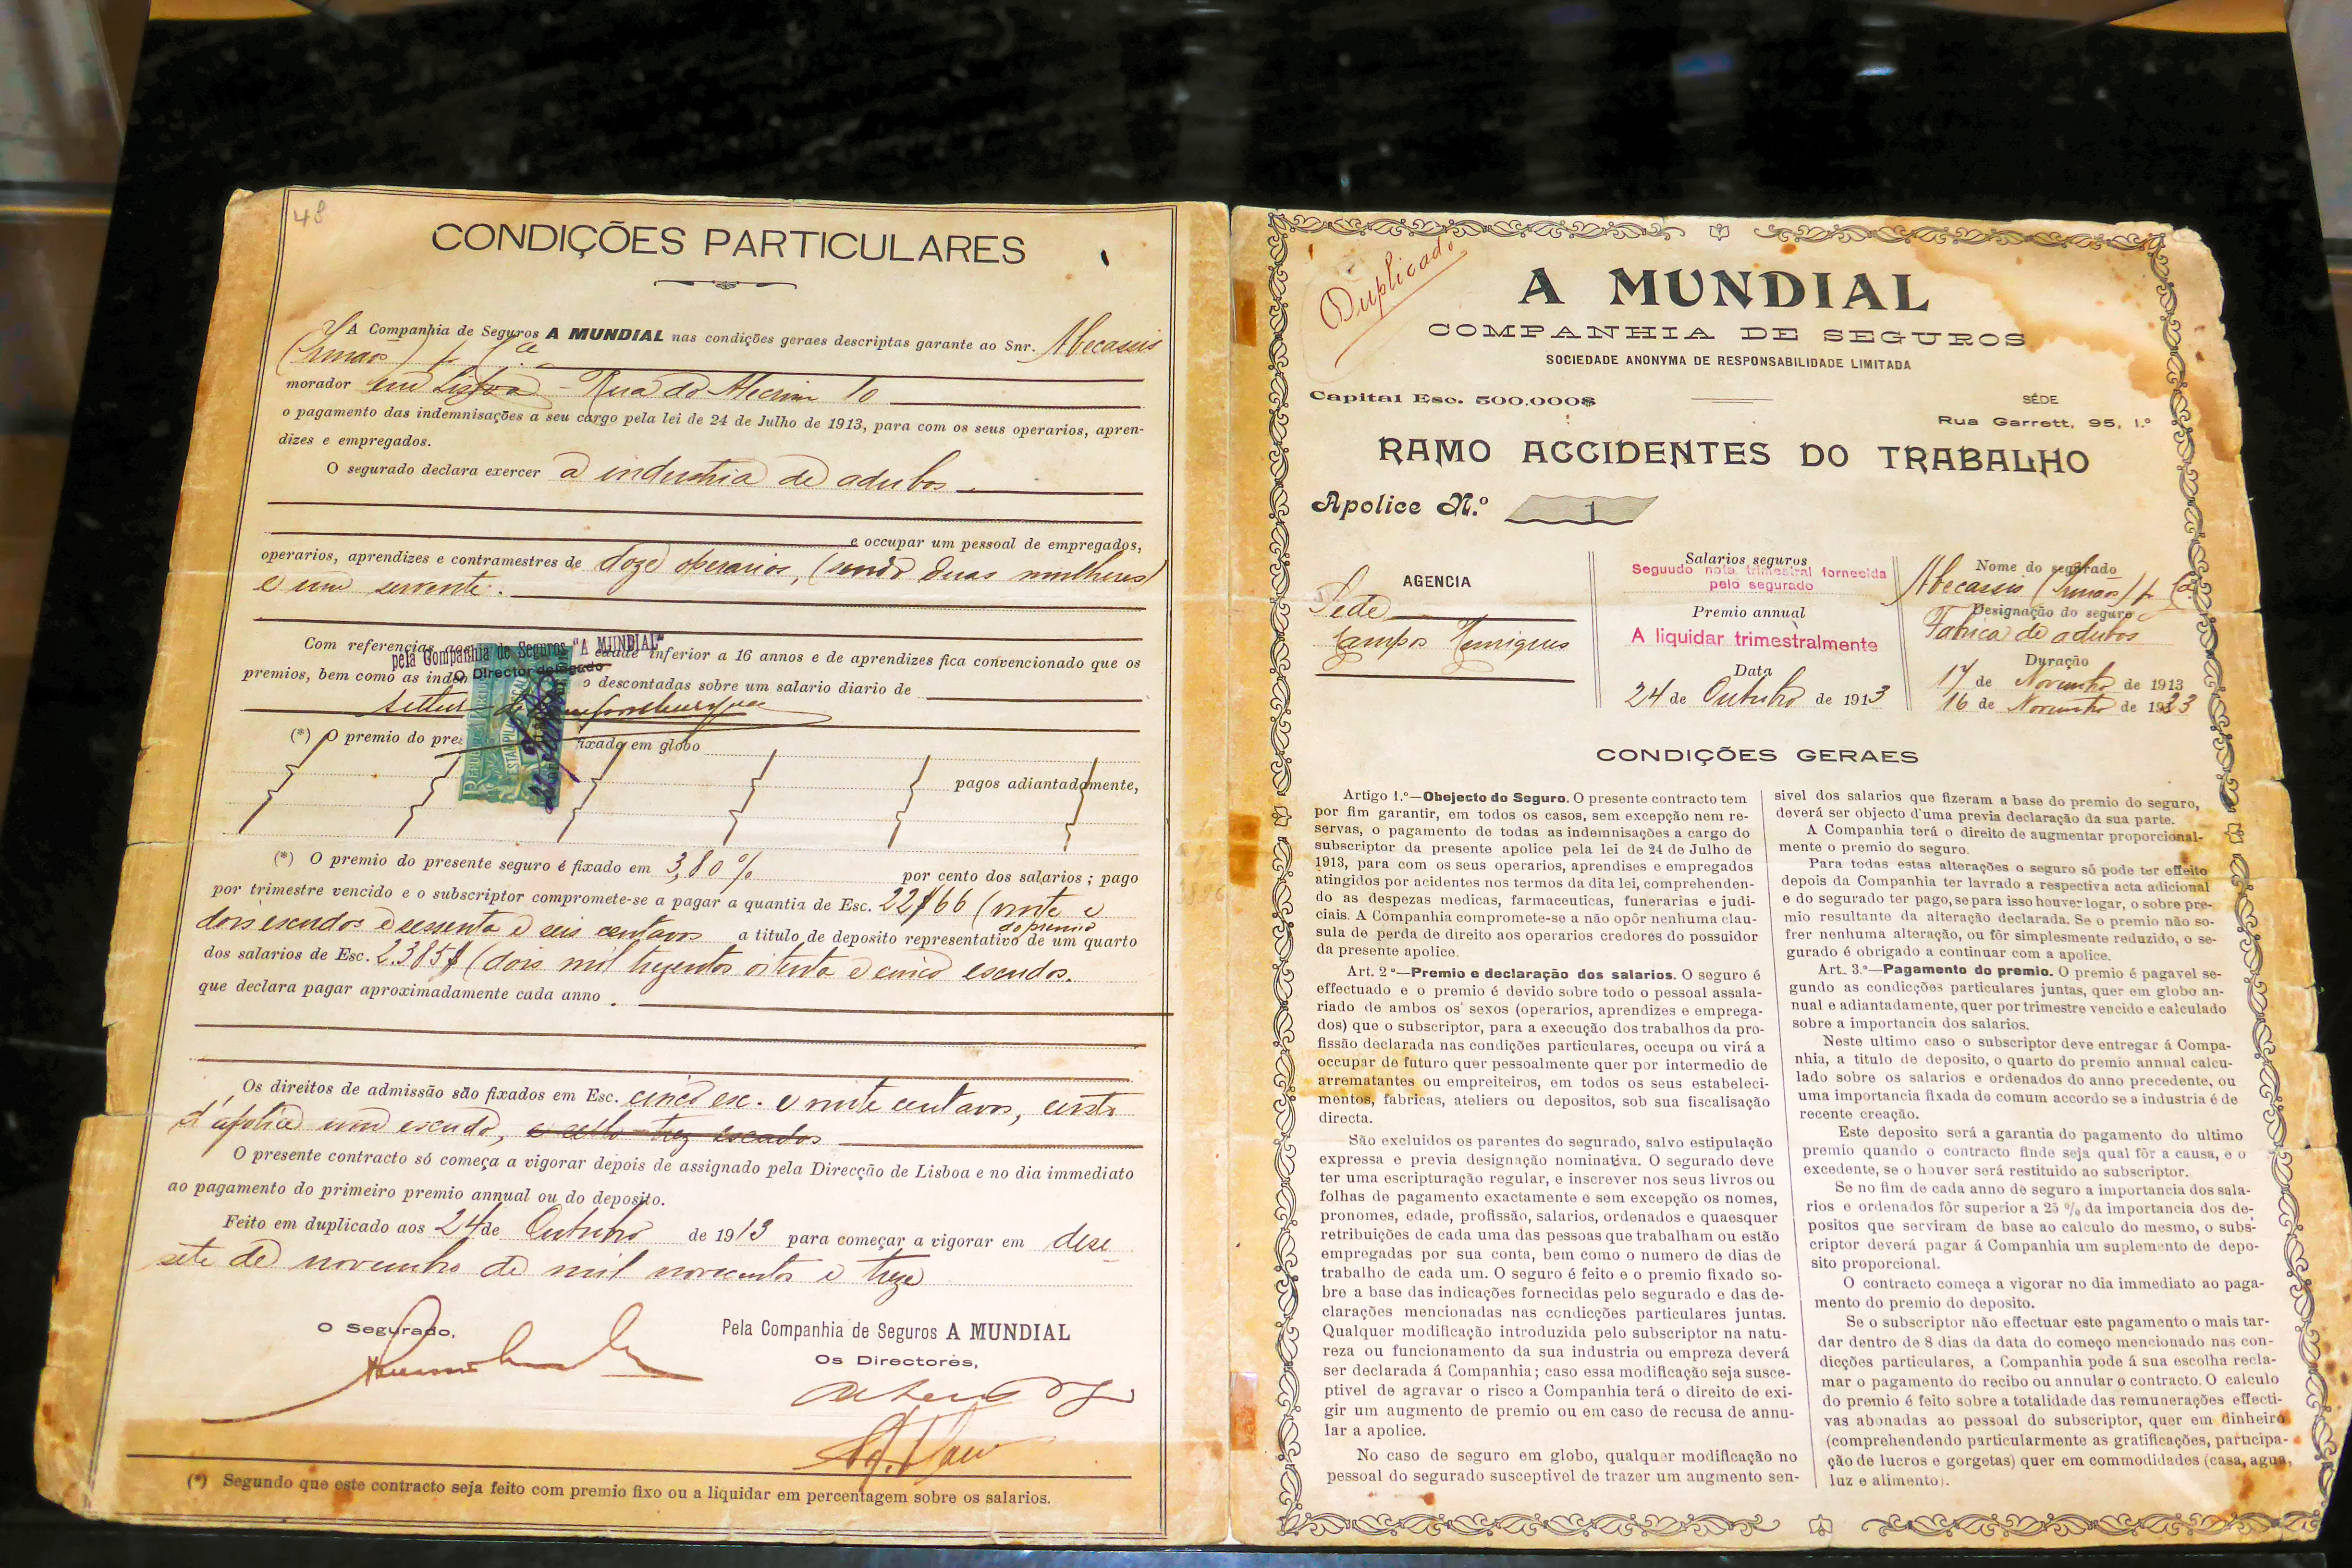 48
CONDIÇÕES PARTICULARES
A Companhia de Seguros A MUNDIAL nas condições geraes descriptas garante ao Snr. Abecassis
(Irmãos) & Cª
morador em Lisboa - Rua do Alecrim 10
o pagamento das indemnisações a seu cargo pela lei de 24 de Julho de 1913, para com os seus operarios, apren-
dizes e empregados.
O segurado declara exercer a industria de adubos
e occupar um pessoal de empregados,
operarios, aprendizes e contramestres de doze operarios, (sendo duas mulheres)
e um servente.
Com referencias
edade inferior a 16 annos e de aprendizes fica convencionado que os
pela Companhia de Seguros "A MUNDIAL"
O Director delegado
premios, bem como as indem
o descontadas sobre um salario diario de
(*) O premio do pre
fixado em globo
pagos adiantadamente,
(*) O premio do presente seguro é fixado em 3,80 % por cento dos salarios; pago
por trimestre vencido e o subscriptor compromete-se a pagar a quantia de Esc. 22$66 (vinte e
dois escudos e sessenta e seis centavos a titulo de deposito representativo de um quarto
do premio
dos salarios de Esc. 2.385$ (dois mil trezentos oitenta e cinco escudos.
que declara pagar aproximadamente cada anno.
Os direitos de admissão são fixados em Esc. cinco esc. e vinte centavos, custo
d'apolice um escudo, e sello trez escudos
O presente contracto só começa a vigorar depois de assignado pela Direcção de Lisboa e no dia immediato
ao pagamento do primeiro premio annual ou do deposito.
Feito em duplicado aos 24 de Outubro de 1913 para começar a vigorar em deze
sete de novembro de mil novecentos e treze
O Segurado,
Pela Companhia de Seguros A MUNDIAL
Os Directores,
(*) Segundo que este contracto seja feito com premio fixo ou a liquidar em percentagem sobre os salarios.
Duplicado
A MUNDIAL
COMPANHIA DE SEGUROS
SOCIEDADE ANONYMA DE RESPONSABILIDADE LIMITADA
Capital Esc. 500.000$
SÉDE
Rua Garrett, 95, 1.º
RAMO ACCIDENTES DO TRABALHO
Apolice N.º 1
AGENCIA
Séde
Campos Henriques
Salarios seguros
Seguudo nota trimestral fornecida
pelo segurado
Premio annual
A liquidar trimestralmente
Data
24 de Outubro de 1913
Nome do segurado
Abecassis (Irmãos) & Cª
Designação do seguro
Fabrica de adubos
Duração
17 de Novembro de 1913
16 de Novembro de 1923
CONDIÇÕES GERAES
Artigo 1.º—Obejecto do Seguro. O presente contracto tem
por fim garantir, em todos os casos, sem excepção nem re-
servas, o pagamento de todas as indemnisações a cargo do
subscriptor da presente apolice pela lei de 24 de Julho de
1913, para com os seus operarios, aprendises e empregados
atingidos por acidentes nos termos da dita lei, comprehenden-
do as despezas medicas, farmaceuticas, funerarias e judi-
ciais. A Companhia compromete-se a não opôr nenhuma clau-
sula de perda de direito aos operarios credores do possuidor
da presente apolice.
Art. 2º—Premio e declaração dos salarios. O seguro é
effectuado e o premio é devido sobre todo o pessoal assala-
riado de ambos os sexos (operarios, aprendizes e emprega-
dos) que o subscriptor, para a execução dos trabalhos da pro-
fissão declarada nas condições particulares, occupa ou virá a
occupar de futuro quer pessoalmente quer por intermedio de
arrematantes ou empreiteiros, em todos os seus estabeleci-
mentos, fabricas, ateliers ou depositos, sob sua fiscalisação
directa.
São excluidos os parentes do segurado, salvo estipulação
expressa e previa designação nominativa. O segurado deve
ter uma escripturação regular, e inscrever nos seus livros ou
folhas de pagamento exactamente e sem excepção os nomes,
pronomes, edade, profissão, salarios, ordenados e quaesquer
retribuições de cada uma das pessoas que trabalham ou estão
empregadas por sua conta, bem como o numero de dias de
trabalho de cada um. O seguro é feito e o premio fixado so-
bre a base das indicações fornecidas pelo segurado e das de-
clarações mencionadas nas condicções particulares juntas.
Qualquer modificação introduzida pelo subscriptor na natu-
reza ou funcionamento da sua industria ou empreza deverá
ser declarada á Companhia; caso essa modificação seja susce-
ptivel de agravar o risco a Companhia terá o direito de exi-
gir um augmento de premio ou em caso de recusa de annu-
lar a apolice.
No caso de seguro em globo, qualquer modificação no
pessoal do segurado susceptivel de trazer um augmento sen-
sivel dos salarios que fizeram a base do premio do seguro,
deverá ser objecto d'uma previa declaração da sua parte.
A Companhia terá o direito de augmentar proporcional-
mente o premio do seguro.
Para todas estas alterações o seguro só pode ter effeito
depois da Companhia ter lavrado a respectiva acta adicional
e do segurado ter pago, se para isso houver logar, o sobre pre-
mio resultante da alteração declarada. Se o premio não so-
frer nenhuma alteração, ou fôr simplesmente reduzido, o se-
gurado é obrigado a continuar com a apolice.
Art. 3.º—Pagamento do premio. O premio é pagavel se-
gundo as condicções particulares juntas, quer em globo an-
nual e adiantadamente, quer por trimestre vencido e calculado
sobre a importancia dos salarios.
Neste ultimo caso o subscriptor deve entregar á Compa-
nhia, a titulo de deposito, o quarto do premio annual calcu-
lado sobre os salarios e ordenados do anno precedente, ou
uma importancia fixada de comum accordo se a industria é de
recente creação.
Este deposito será a garantia do pagamento do ultimo
premio quando o contracto finde seja qual fôr a causa, e o
excedente, se o houver será restituido ao subscriptor.
Se no fim de cada anno de seguro a importancia dos sala-
rios e ordenados fôr superior a 25 % da importancia dos de-
positos que serviram de base ao calculo do mesmo, o subs-
criptor deverá pagar á Companhia um suplemento de depo-
sito proporcional.
O contracto começa a vigorar no dia immediato ao paga-
mento do premio do deposito.
Se o subscriptor não effectuar este pagamento o mais tar-
dar dentro de 8 dias da data do começo mencionado nas con-
dicções particulares, a Companhia pode á sua escolha recla-
mar o pagamento do recibo ou annular o contracto. O calculo
do premio é feito sobre a totalidade das remunerações effecti-
vas abonadas ao pessoal do subscriptor, quer em dinheiro
(comprehendendo particularmente as gratificações, participa-
ção de lucros e gorgetas) quer em commodidades (casa, agua,
luz e alimento).